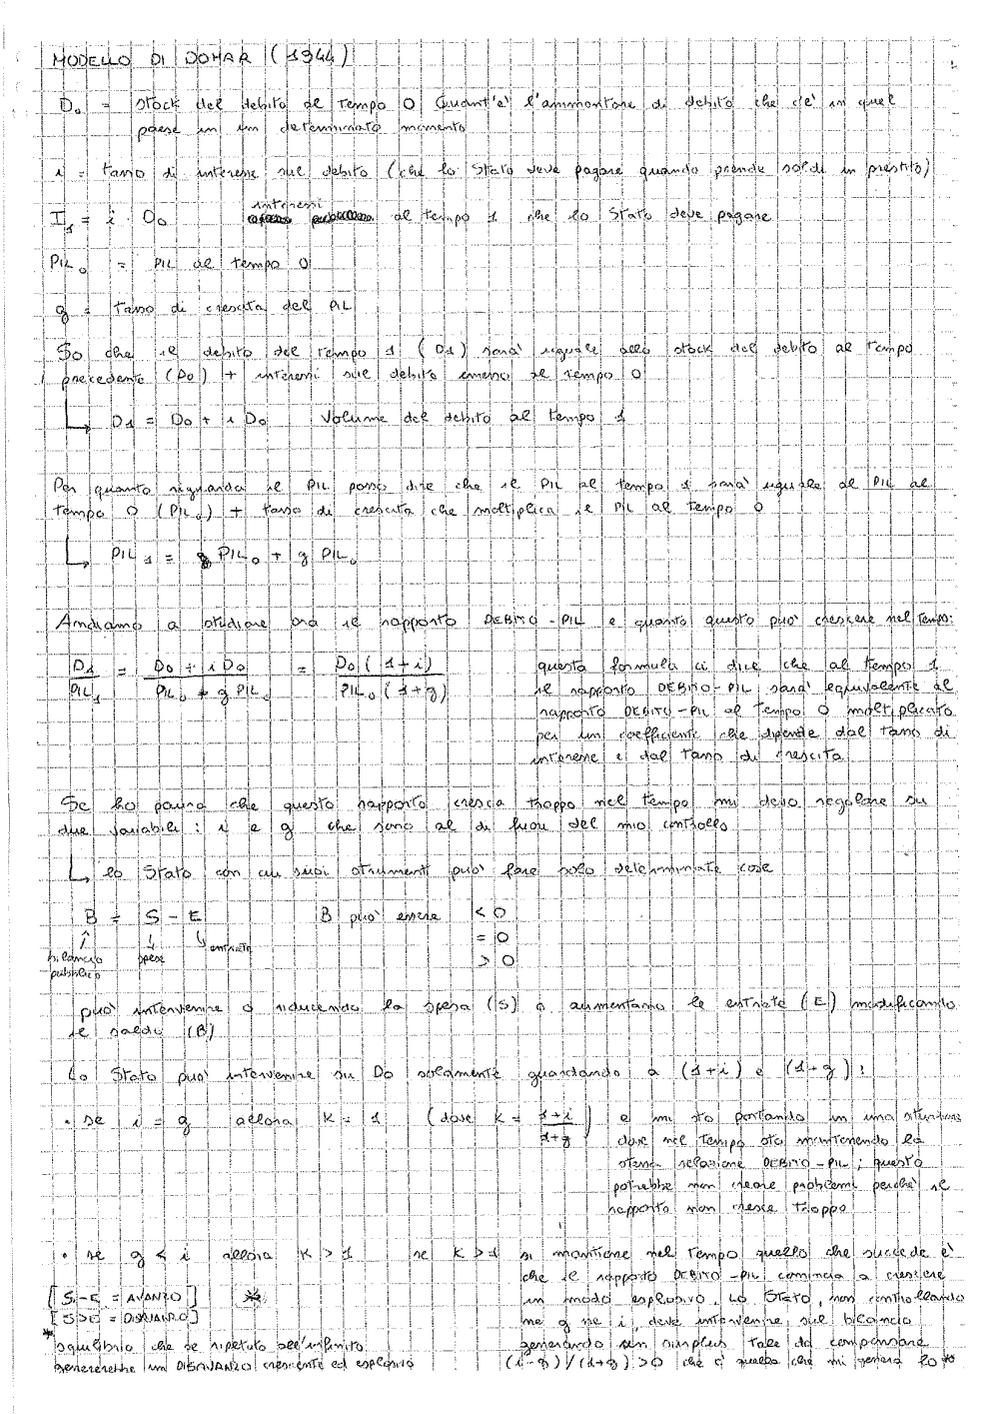 MODELLO DI DOMAR (1944)
D₀ = stock del debito al tempo 0 Quant'è l'ammontare di debito che c'è in quel
paese in un determinato momento
i = tasso di interesse sul debito (che lo Stato deve pagare quando prende soldi in prestito)
interessi
I₁ = i · D₀ al tempo 1 che lo Stato deve pagare
PIL₀ = PIL al tempo 0
g = tasso di crescita del PIL
So che il debito del tempo 1 (D1) sarà uguale allo stock del debito al tempo
precedente (D0) + interessi sul debito emessi al tempo 0
↳ D1 = D0 + i D0 Volume del debito al tempo 1
Per quanto riguarda il PIL posso dire che il PIL al tempo 1 sarà uguale al PIL al
tempo 0 (PIL₀) + tasso di crescita che moltiplica il PIL al tempo 0
↳ PIL₁ = PIL₀ + g PIL₀
Andiamo a studiare ora il rapporto DEBITO-PIL e quanto questo può crescere nel tempo:
D1 / PIL₁ = D0 + i D0 / PIL₀ + g PIL₀ = D0 (1+i) / PIL₀ (1+g)
questa formula ci dice che al tempo 1
il rapporto DEBITO-PIL sarà equivalente al
rapporto DEBITO-PIL al tempo 0 moltiplicato
per un coefficiente che dipende dal tasso di
interesse e dal tasso di crescita
Se ho paura che questo rapporto cresca troppo nel tempo mi devo regolare su
due variabili: i e g che sono al di fuori del mio controllo
↳ lo Stato con cui suoi strumenti può fare solo determinate cose
B = S - E B può essere < 0
= 0
> 0
↑ bilancio pubblico
↓ spese
↳ entrate
può intervenire o riducendo la spesa (S) o aumentando le entrate (E) modificando
il saldo (B)
Lo Stato può intervenire su D0 solamente guardando a (1+i) e (1+g):
• se i = g allora K = 1 (dove K = 1+i / 1+g) e mi sto portando in una situazione
dove nel tempo sto mantenendo la
stessa relazione DEBITO-PIL; questo
potrebbe non creare problemi perché il
rapporto non cresce troppo
• se g < i allora K > 1 se K > 1 si mantiene nel tempo quello che succede è
che il rapporto DEBITO-PIL comincia a crescere
in modo esplosivo. Lo STATO, non controllando
né g né i, deve intervenire sul bilancio
generando un surplus tale da compensare
(i-g)/(1+g) > 0 che è quello che mi genera lo **
[S-E = AVANZO] *
[S>E = DISAVANZO]
* equilibrio che se ripetuto all'infinito
genererebbe un DISAVANZO crescente ed esplosivo